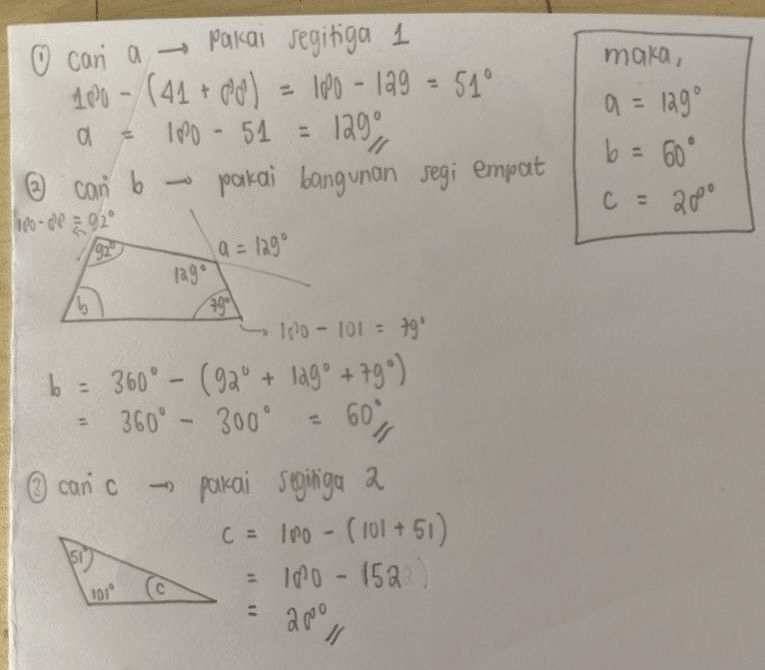 ① cari a → pakai segitiga 1
180 - (41 + 88) = 180 - 129 = 51°
a = 180 - 51 = 129°
② cari b → pakai bangunan segi empat
180 - 88 = 92°
92°
a = 129°
129°
b
79°
→ 180 - 101 = 79°
b = 360° - (92° + 129° + 79°)
= 360° - 300° = 60°
③ cari c → pakai segitiga 2
51°
101°
c
c = 180 - (101 + 51)
= 180 - 152
= 28°
maka,
a = 129°
b = 60°
c = 28°